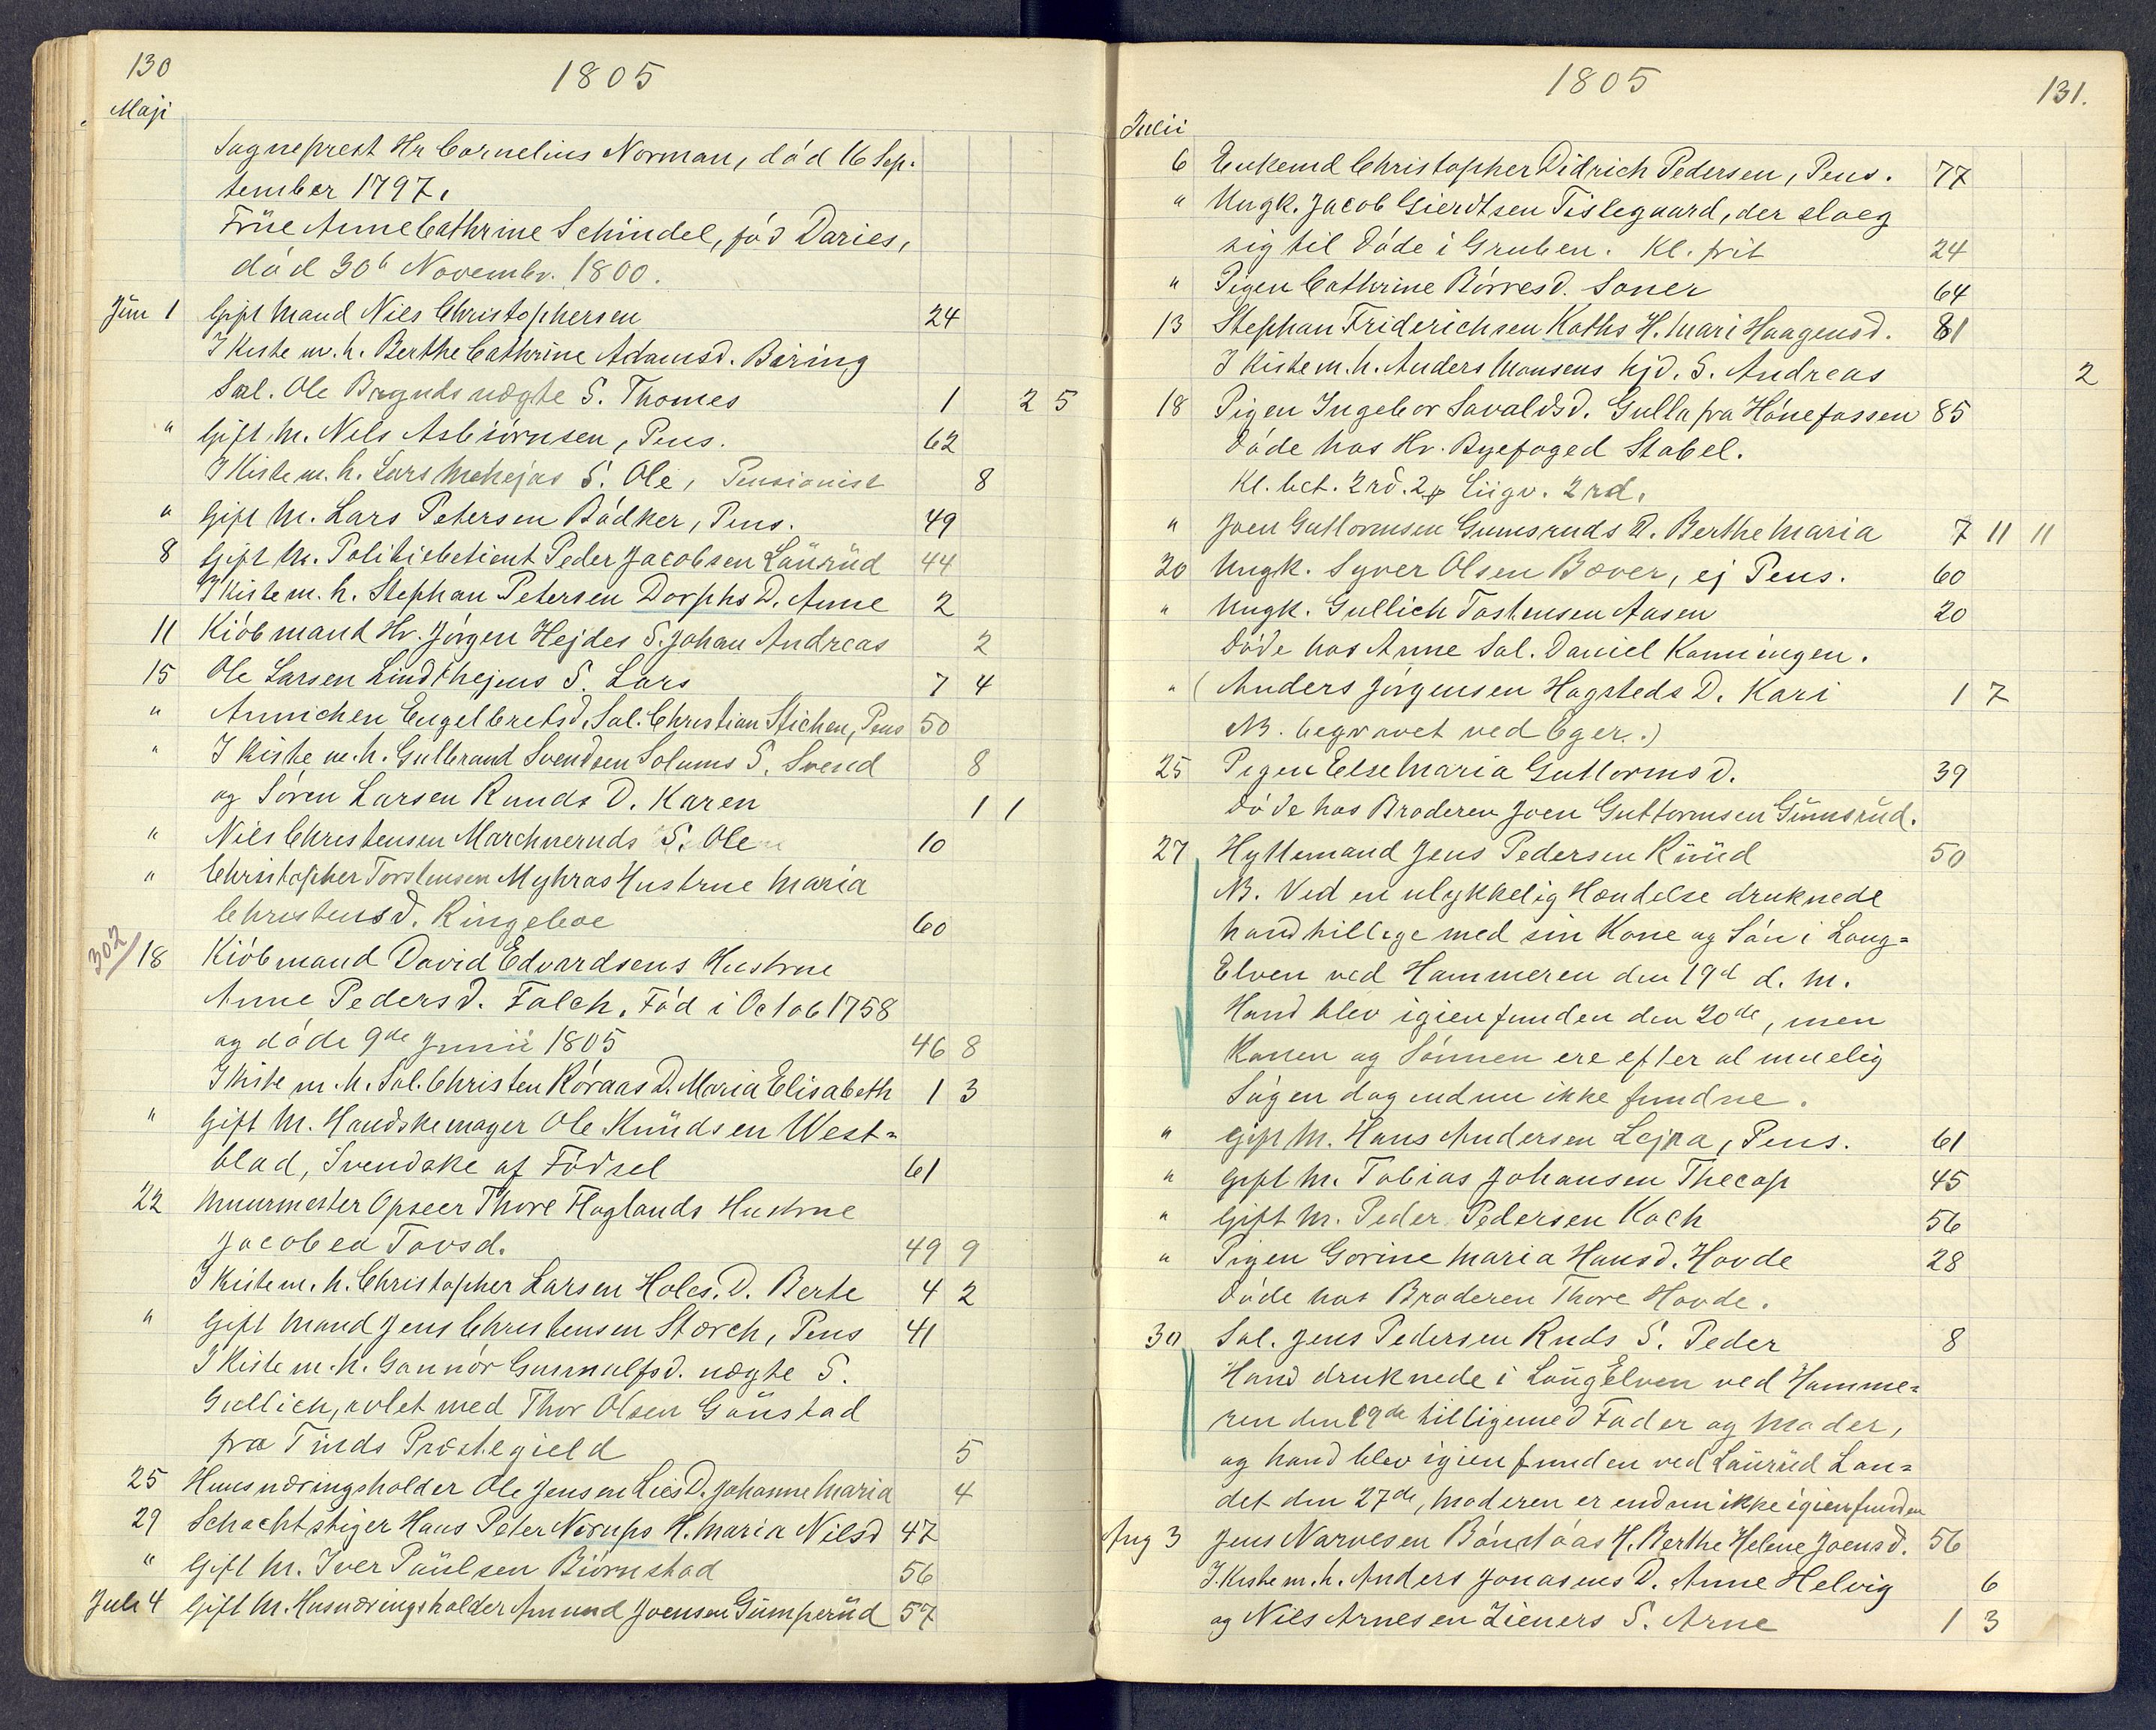 130
1805
Maji
Sogneprest Hr Cornelius Norman, död 16 Sep-
tember 1797.
Früe Anne Cathrine Schindel, föd Daries,
död 30t Novembr. 1800.
Jun 1 Gift Mand Niels Christophersen 24
I Kiste m. h. Berthe Cathrine Adamsd. Bering
Sal. Ole Brynds uægte S. Thomes 1 2 5
" Gift M. Nels Asbiörnsen, Pens. 62
I Kiste m. h. Lars Mehejas S. Ole, Pensionist 8
" Gift M. Lars Petersen Bödker, Pens. 49
8 Gift M. Politiebetient Peder Jacobsen Laürüd 44
I Kiste m. h. Stephan Petersen Dorphs D. Anne 2
11 Kiöbmand Hr. Jörgen Hejdes S. Johan Andreas 2
15 Ole Larsen Lindthejens S. Lars 7 4
" Annichen Engelbretsd. Sal. Christian Stichen, Pens 50
" I Kiste m. h. Gulbrand Svendsen Solums S. Svend 8
og Sören Larsen Ruuds D. Karen 1 1
" Niels Christensen Marchveruds S. Ole 10
" Christopher Torstensen Myhras Hustrue Maria
Christensd. Ringeboe 60
302/ 18 Kiöbmand David Edvardsens Hustrue
Anne Pedersd. Falch. Föd i Octob 1758
og döde 9de Junii 1805 46 8
I Kiste m. h. Sal. Christen Röraas D. Maria Elisabeth 1 3
" Gift M. Handskemager Ole Knüdsen West-
blad, Svendske af Födsel 61
22 Muurmester Opseer Thore Haglands Hustrue
Jacobea Tovsd. 49 9
I Kiste m. h. Christopher Larsen Holes. D. Berte 4 2
" Gift Mand Jens Christensen Storch, Pens 41
I Kiste m. h. Gunnör Gunnulfsd. uægte S.
Gullich, avlet med Thor Olsen Göustad
fra Tinds Præstegield 5
25 Huusnæringsholder Ole Jensen Lies D. Johanne Maria 4
29 Schachtstiger Hans Peter Nerups H. Maria Nilsd 47
" Gift M. Iver Paülsen Biörnstad 56
Juli 4 Gift M. Husnæringsholder Amund Joensen Gumperüd 57
1805
131.
Julii
6 Enkemd Christopher Didrich Pedersen, Pens. 77
" Ungk. Jacob Gierdtsen Tislegaard, der sloeg
sig til Döde i Gruben. Kl. frit 24
" Pigen Cathrine Börresd. Soner 64
13 Stephan Friderichsen Koths H. Mari Haagensd. 81
I Kiste m. h. Anders Monsens hjd. S. Andreas 2
18 Pigen Ingebor Savaldsd. Gulla fra Hönefossen 85
döde hos Hr. Byefoged Stabel.
Kl. bet. 2 rd. Liigv. 2 rd.
" Joen Guttormsen Gumsruds D. Berthe Maria 7 11 11
20 Ungk. Syver Olsen Bæver, ej Pens. 60
" Ungk. Gullich Tostensen Aasen 20
döde hos Anne Sal. Daniel Konningen.
" (Anders Jörgensen Hogsteds D. Kari 1 7
NB. begravet ved Eger.)
25 Pigen Else Maria Guttormsd. 39
döde hos Broderen Joen Guttormsen Gumsrud.
27 Hyttemand Jens Pedersen Rüüd 50
NB. Ved en ulykkelig Hændelse druknede
hand tillige med sin Kone og Sön i Loug-
Elven ved Hammeren den 19d d. M.
Hand blev igien funden den 20de, men
Konen og Sönnen ere efter al muelig
Sögen dog endnu ikke fundne.
" Gift M. Hans Andersen Lejra, Pens. 61
" Gift M. Tobias Johansen Thecop 45
" Gift M. Peder Pedersen Koch 56
" Pigen Gorine Maria Hansd. Hovde 28
döde hos Broderen Thore Hovde.
30 Sal. Jens Pedersen Ruds S. Peder 8
Hand druknede i LoügElven ved Hamme-
ren den 19de tilligemed Fader og Moder,
og hand blev igien funden ved Laürüd Lan-
det den 27de, Moderen er endnu ikke igienfunden
Aug 3 Jens Narvesen Bönstöas H. Berthe Helene Joensd. 56
I Kiste m. h. Anders Jonasens D. Anne Helvig 6
og Niels Arnesen Zieners S. Arne 1 3